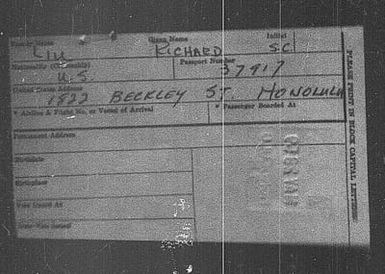 Family Name Given Name Initial
LIU RICHARD S.C
Nationality (Citizenship) Passport Number
U.S. 37917
United States Address
1822 BECKLEY ST. HONOLULU
* Airline & Flight No. or Vessel of Arrival * Passenger Boarded At
Permanent Address
Birthdate
Birthplace
Visa Issued At
Date Visa Issued
PLEASE PRINT IN BLOCK CAPITAL LETTERS